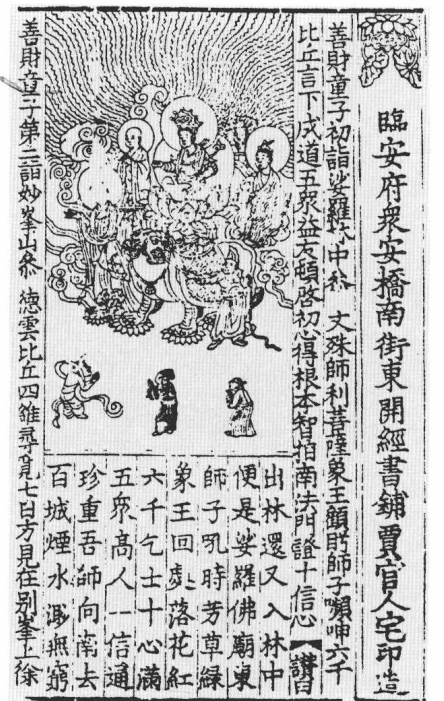 臨安府衆安橋南街東開經書鋪賈官人宅印造
善財童子初詣娑羅林中叅 文殊師利菩薩象王顧盻師子嚬呻六千
比丘言下成道五衆益友頓啓初心得根本智指南法門證十信心 讚曰
出林還又入林中
便是娑羅佛廟東
師子吼時芳草綠
象王回處落花紅
六千乞士十心滿
五衆高人一信通
珍重吾師向南去
百城煙水渺無窮
善財童子第二詣妙峯山叅 德雲比丘四維尋覓七日方見在別峯上徐